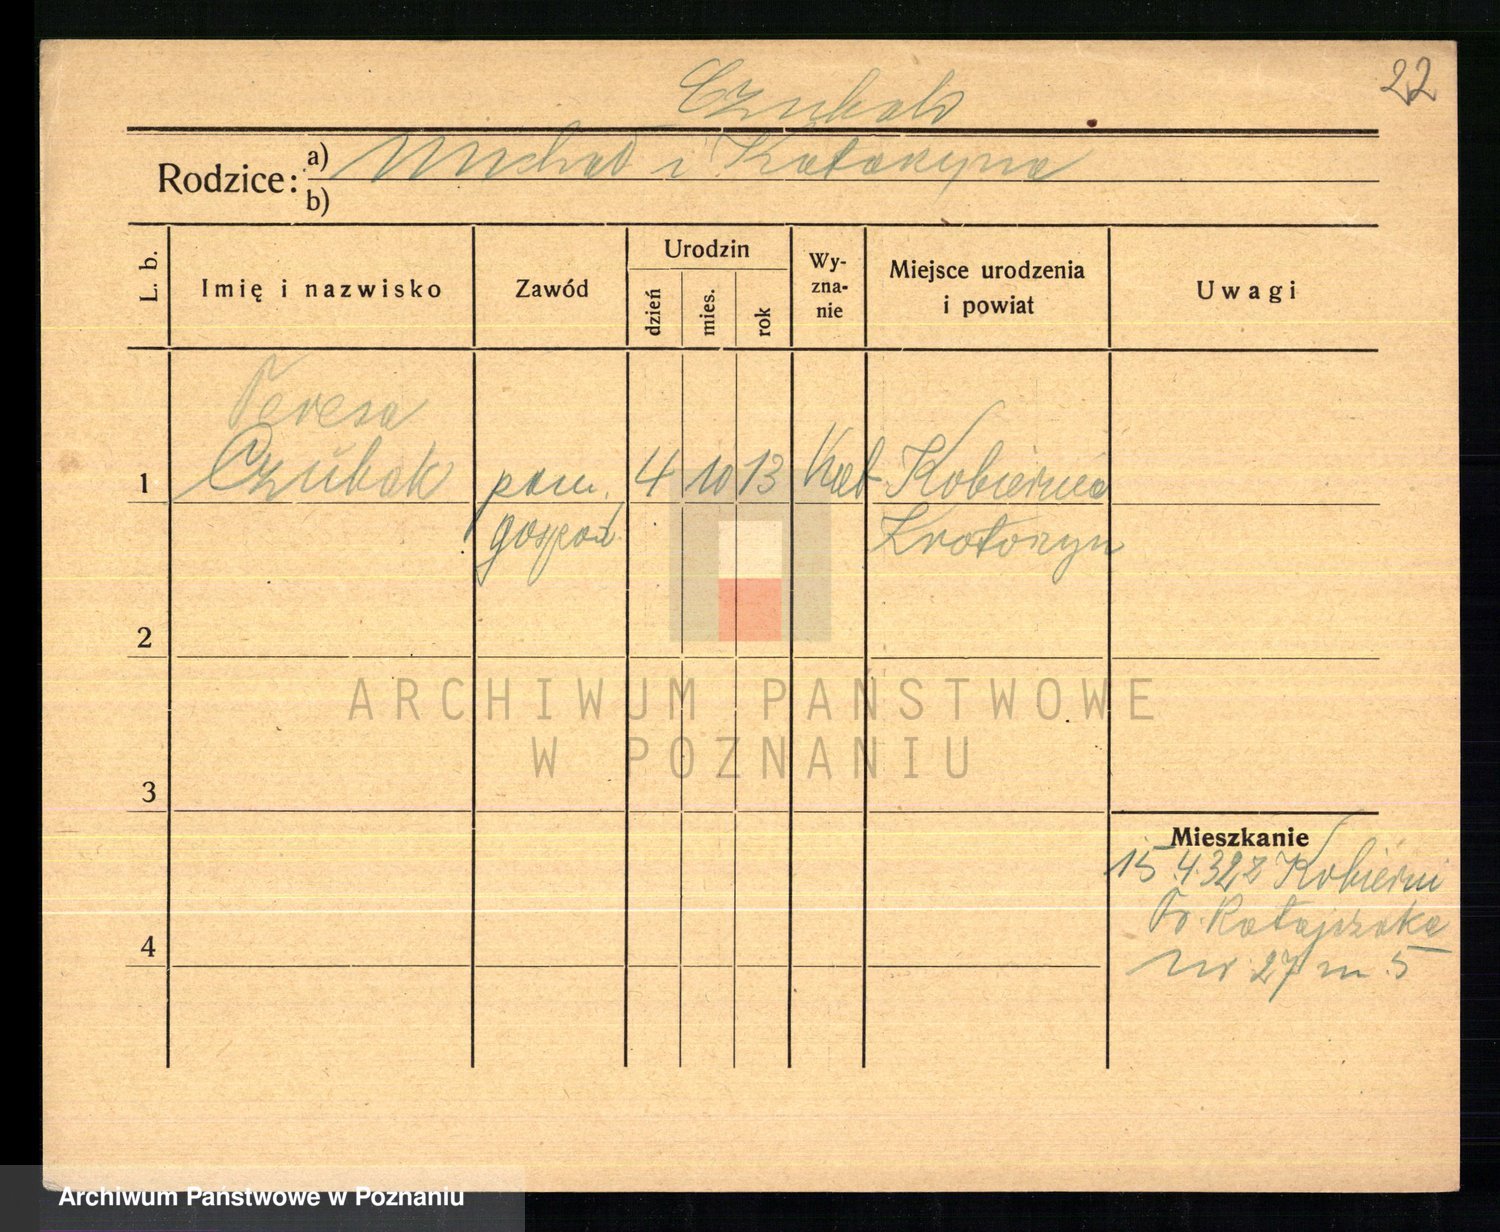 22
Czubak
Rodzice: a) Michał i Katarzyna
b)
L. b.
Imię i nazwisko
Zawód
Urodzin
dzień
mies.
rok
Wy-
zna-
nie
Miejsce urodzenia
i powiat
Uwagi
Teresa
1 Czubak pom. 4 10 13 Kat Kobiernia
gospod. Krotoszyn
2
3
4
Mieszkanie
15.4.32 z Kobierni
Fr. Ratajczaka
nr. 27 m. 5
ARCHIWUM PAŃSTWOWE
W POZNANIU
Archiwum Państwowe w Poznaniu